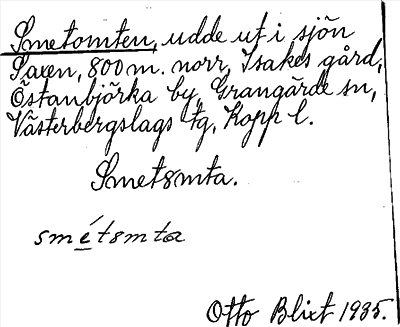 Smetomten, udde ut i sjön
Saxen, 800 m. norr, Isakes gård,
Östanbjörka by, Grangärde sn,
Västerbergslags tg, Kopp l.
Smetsmta.
smétsmta
Otto Blixt 1935.